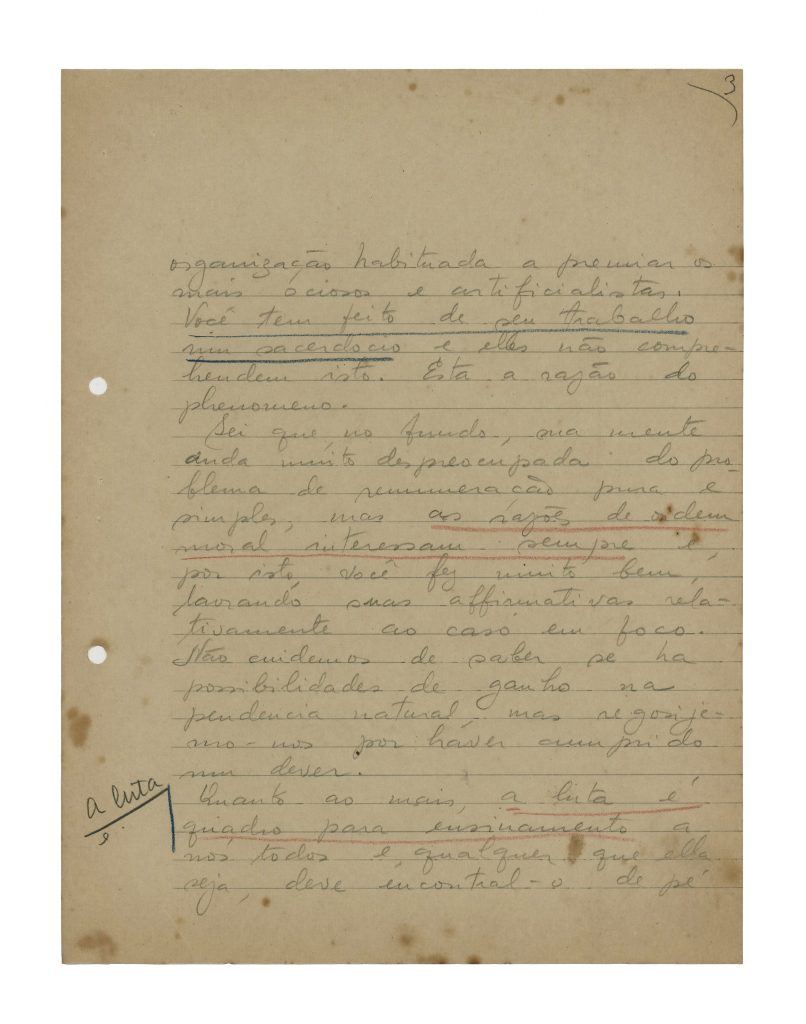 3
organização habituada a premiar os
mais ociosos e artificialistas.
Você tem feito de seu trabalho
um sacerdocio e eles não compre-
hendem isto. Esta a razão do
phenomeno.
Sei que, no fundo, sua mente
anda muito despreocupada do pro-
blema de remuneração pura e
simples, mas as razões de ordem
moral interessam sempre e,
por isto, você fez muito bem,
lavrando suas affirmativas rela-
tivamente ao caso em foco.
Não cuidemos de saber se ha
possibilidades de ganho na
pendencia natural, mas regosije-
mo-nos por haver cumprido
um dever.
Quanto ao mais, a luta é
quadro para ensinamento a
nós todos e, qualquer que ella
seja, deve encontral-o de pé
A luta
é